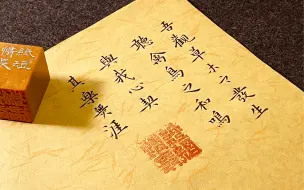 吾觀草木之發生
聽禽鳥之和鳴
與我心契
其樂無涯